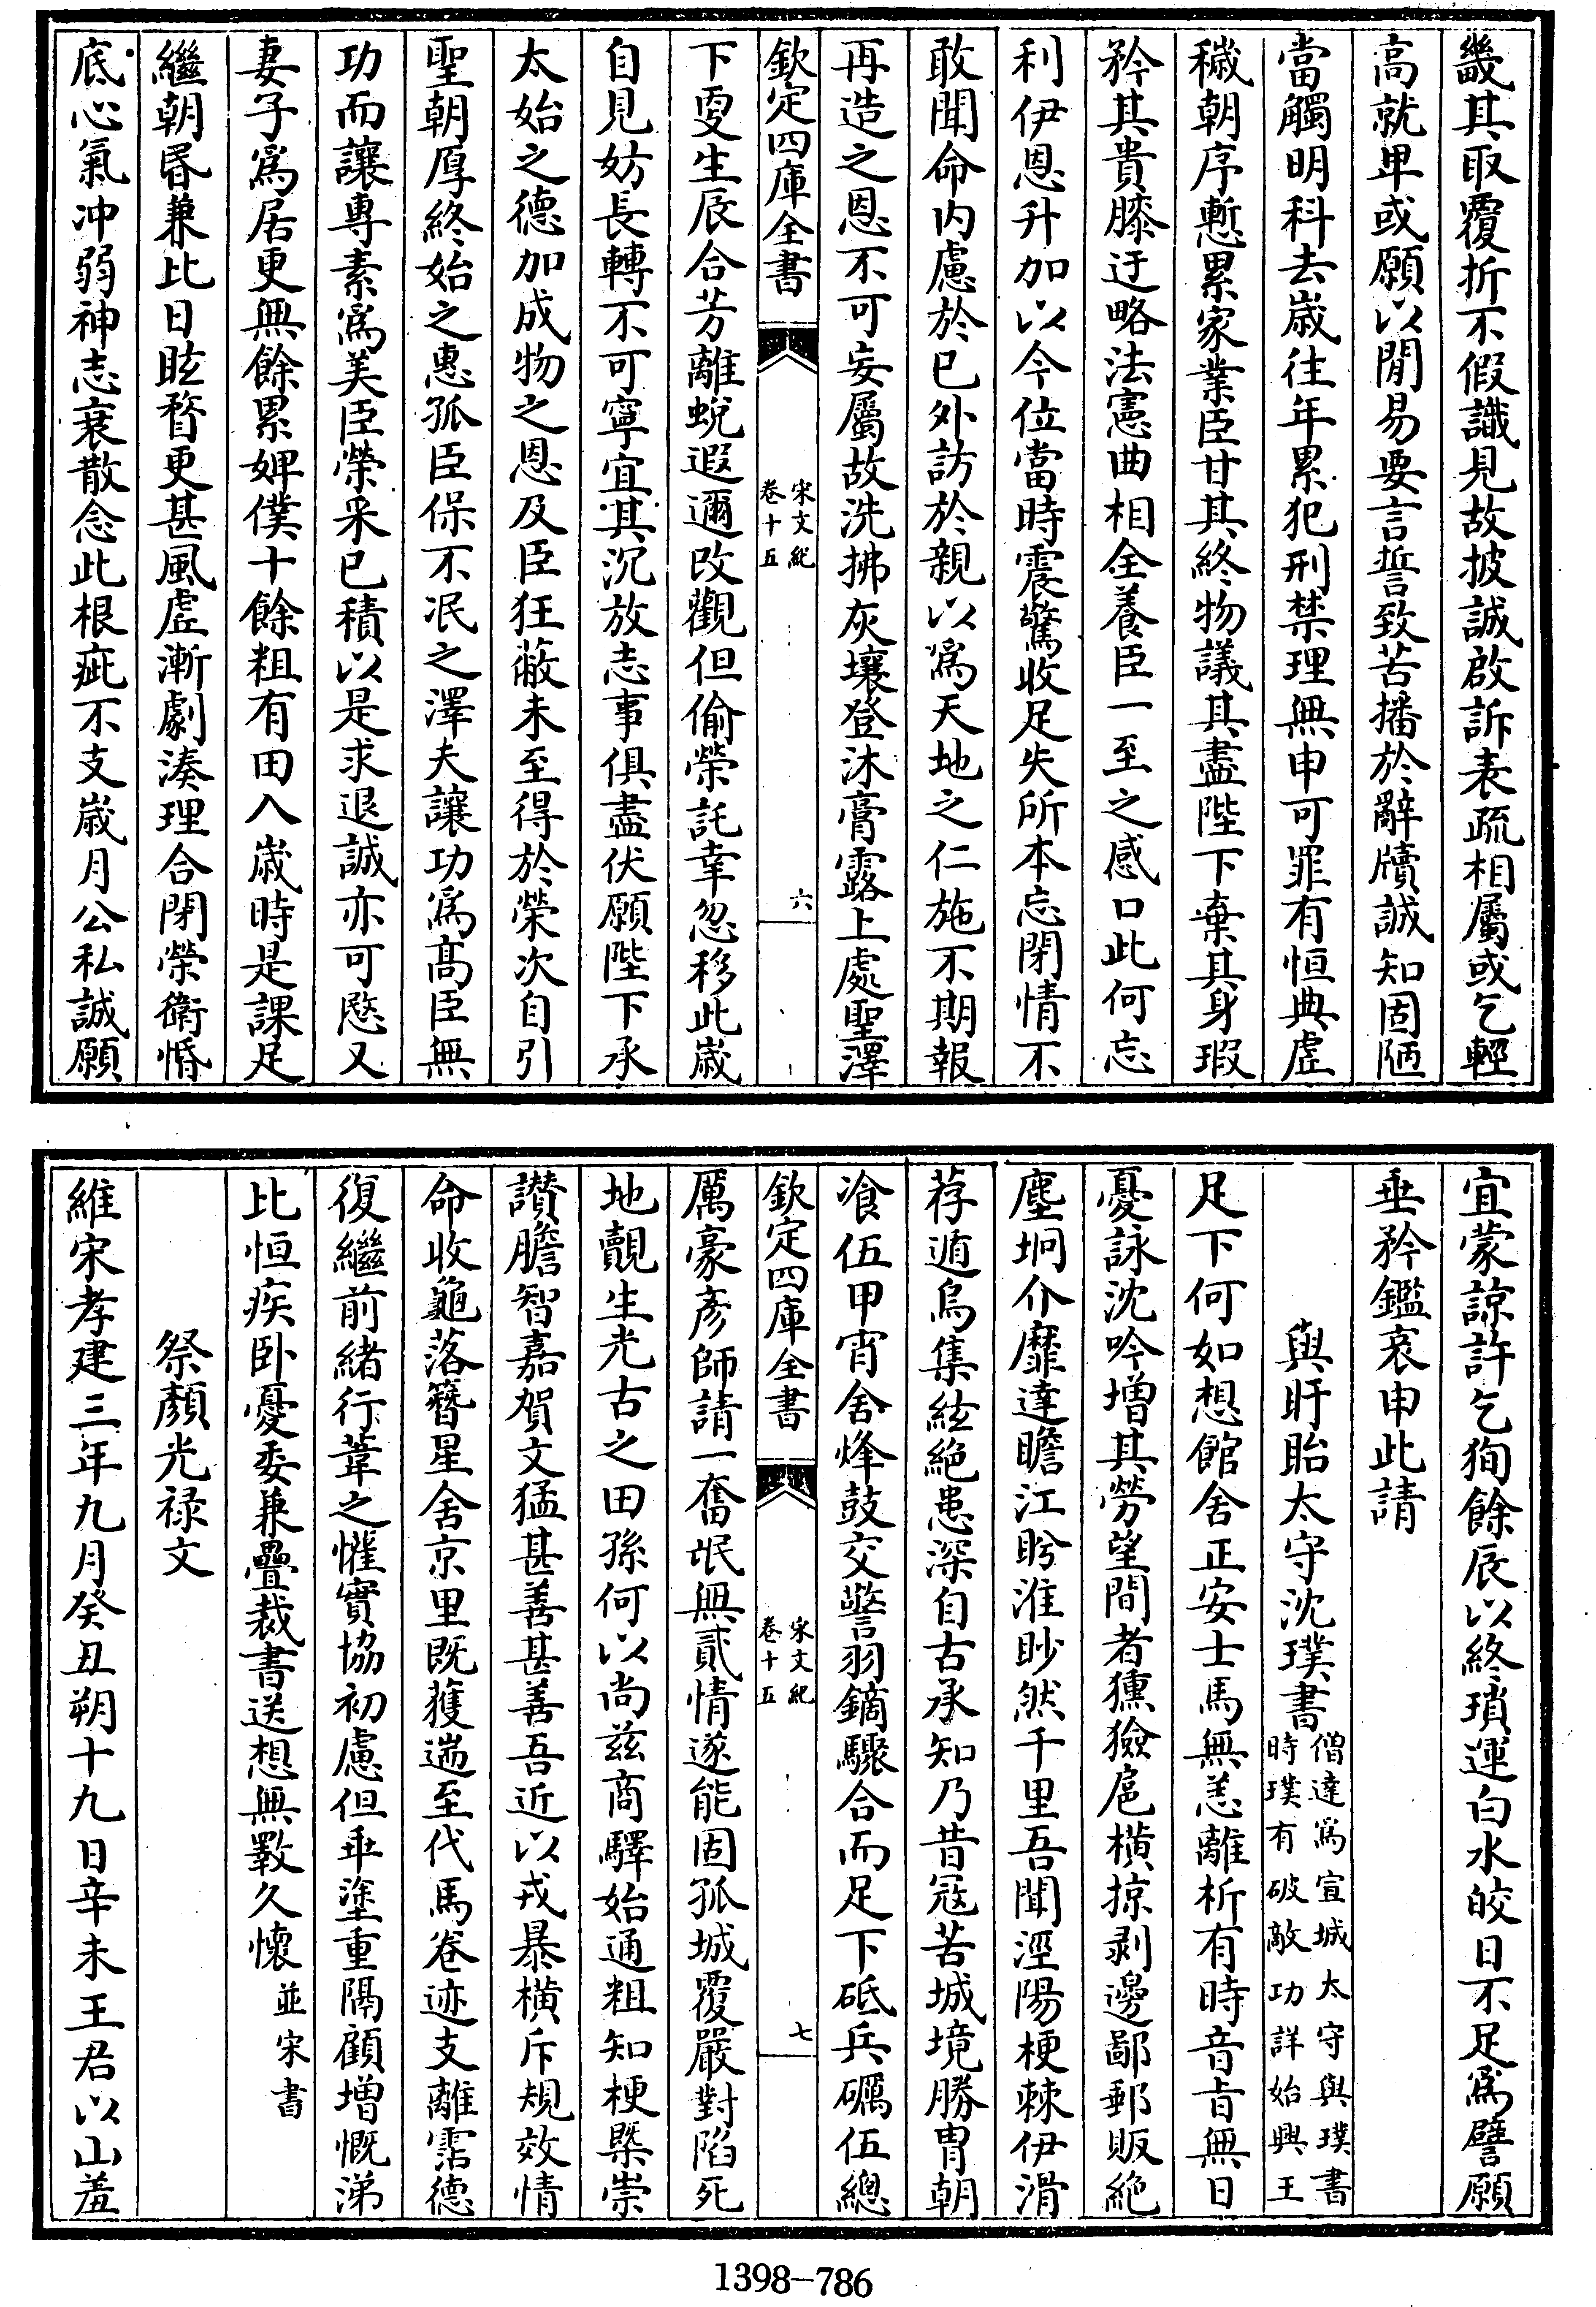 畿其取覆折不假識見故披誠啟訴表疏相屬或乞輕
高就卑或願以閒易要言誓致苦播於辭牘誠知固陋
當觸明科去歲往年累犯刑禁理無申可罪有恒典虛
穢朝序慙累家業臣甘其終物議其盡陛下棄其身瑕
矜其貴膝迂略法憲曲相全養臣一至之感口此何忘
利伊恩升加以今位當時震驚收足失所本忘閉情不
敢聞命内慮於已外訪於親以為天地之仁施不期報
再造之恩不可妄屬故洗拂灰壤登沐膏露上處聖澤
欽定四庫全書
宋文紀
卷十五
六
下更生辰合芳離蛻遐邇改觀但偷榮託幸忽移此歲
自見妨長轉不可寧宜其沉放志事俱盡伏願陛下承
太始之德加成物之恩及臣狂蔽未至得於榮次自引
聖朝厚終始之惠孤臣保不泯之澤夫讓功為髙臣無
功而讓專素為美臣榮采已積以是求退誠亦可愍又
妻子為居更無餘累婢僕十餘粗有田入歲時是課足
繼朝昏兼比日眩瞀更甚風虛漸劇湊理合閉榮衛惛
底心氣冲弱神志衰散念此根疵不支歲月公私誠願
宜蒙諒許乞徇餘辰以終瑣運白水皎日不足為譬願
垂矜鑑哀申此請
與盱眙太守沈璞書
僧達為宣城太守與璞書
時璞有破敵功詳始興王
足下何如想館舍正安士馬無恙離析有時音旨無日
憂詠沈吟增其勞望間者獯獫扈横掠剥邊鄙郵販絶
塵坰介靡達瞻江盻淮眇然千里吾聞涇陽梗棘伊滑
荐遁烏集絃絶患深自古承知乃昔冦苦城境勝胄朝
飡伍甲宵舍烽鼓交警羽鏑驟合而足下砥兵礪伍總
欽定四庫全書
宋文紀
卷十五
七
厲豪彦師請一奮氓無貳情遂能固孤城覆嚴對陷死
地覿生光古之田孫何以尚兹商驛始通粗知梗槩崇
讃膽智嘉賀文猛甚善甚善吾近以戎暴横斥規效情
命收龜落簪星舍京里既獲遄至代馬卷迹支離霑德
復繼前緒行葦之懽實協初慮但垂塗重隔顧增慨涕
比恒疾卧憂委兼疊裁書送想無斁久懷
並宋書
祭顏光禄文
維宋孝建三年九月癸丑朔十九日辛未王君以山羞
1398-786